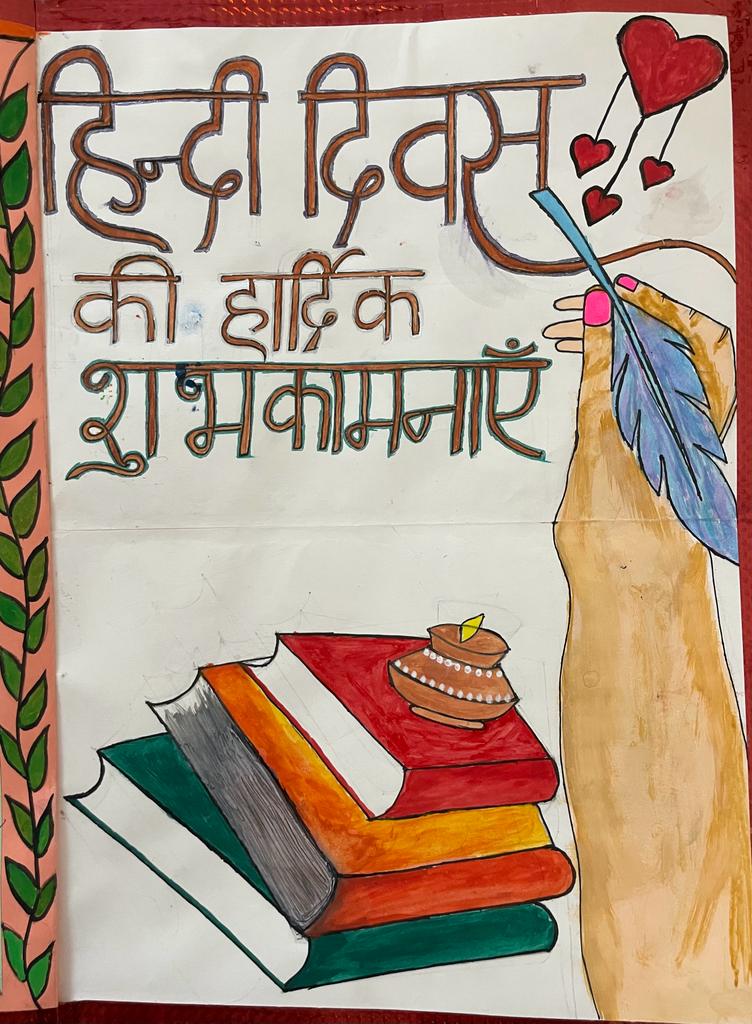 हिन्दी दिवस
की हार्द्रिक
शुभकामनाएँ